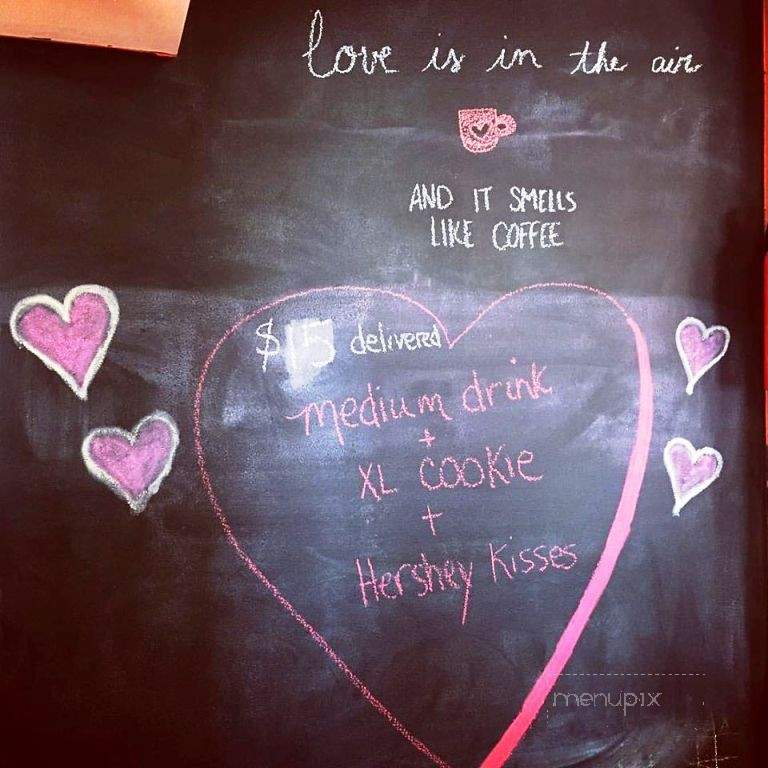 love is in the air
AND IT SMELLS
LIKE COFFEE
$15 delivered
medium drink
+
XL COOKIE
+
Hershey Kisses
menupix